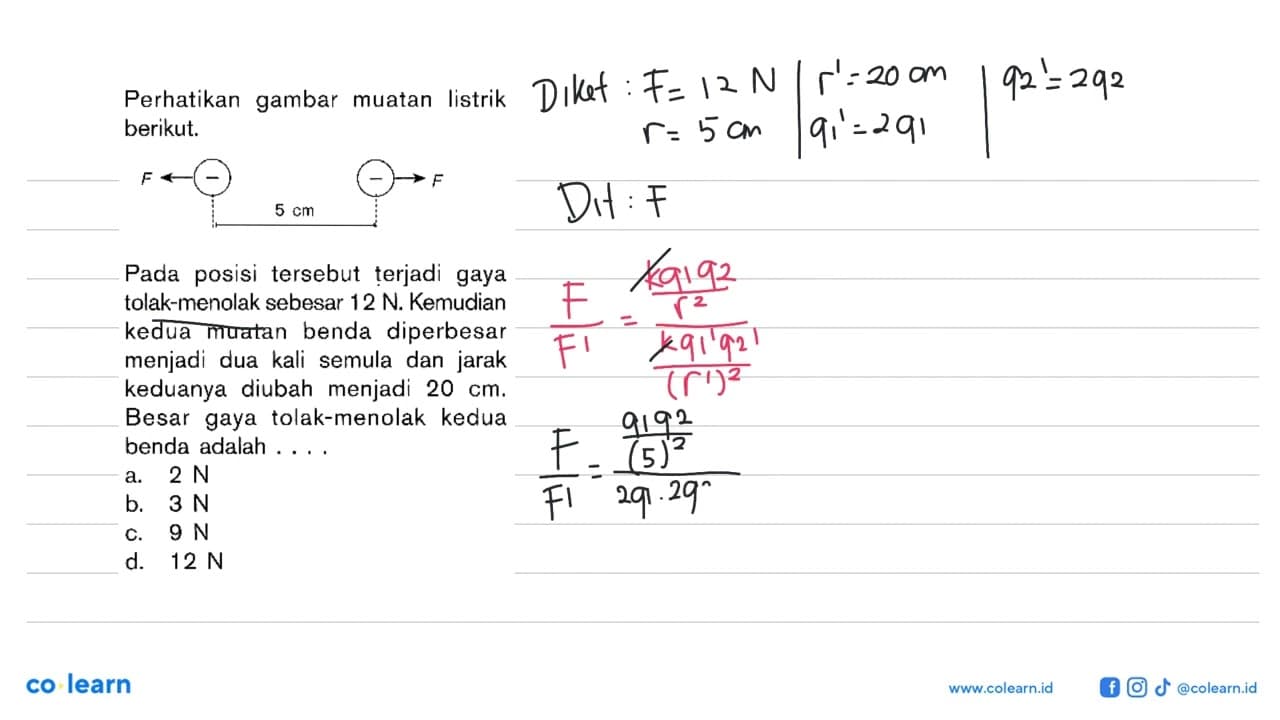 Perhatikan gambar muatan listrik
berikut.
F − − F
5 cm
Pada posisi tersebut terjadi gaya
tolak-menolak sebesar 12 N. Kemudian
kedua muatan benda diperbesar
menjadi dua kali semula dan jarak
keduanya diubah menjadi 20 cm.
Besar gaya tolak-menolak kedua
benda adalah . . . .
a. 2 N
b. 3 N
c. 9 N
d. 12 N
Diket : F = 12 N | r' = 20 cm | q2' = 2q2
r = 5 cm | q1' = 2q1
Dit : F
F/F' = (kq1q2/r²)/(kq1'q2'/(r')²)
F/F' = (q1q2/(5)²)/(2q1 . 2q
co learn
www.colearn.id @colearn.id